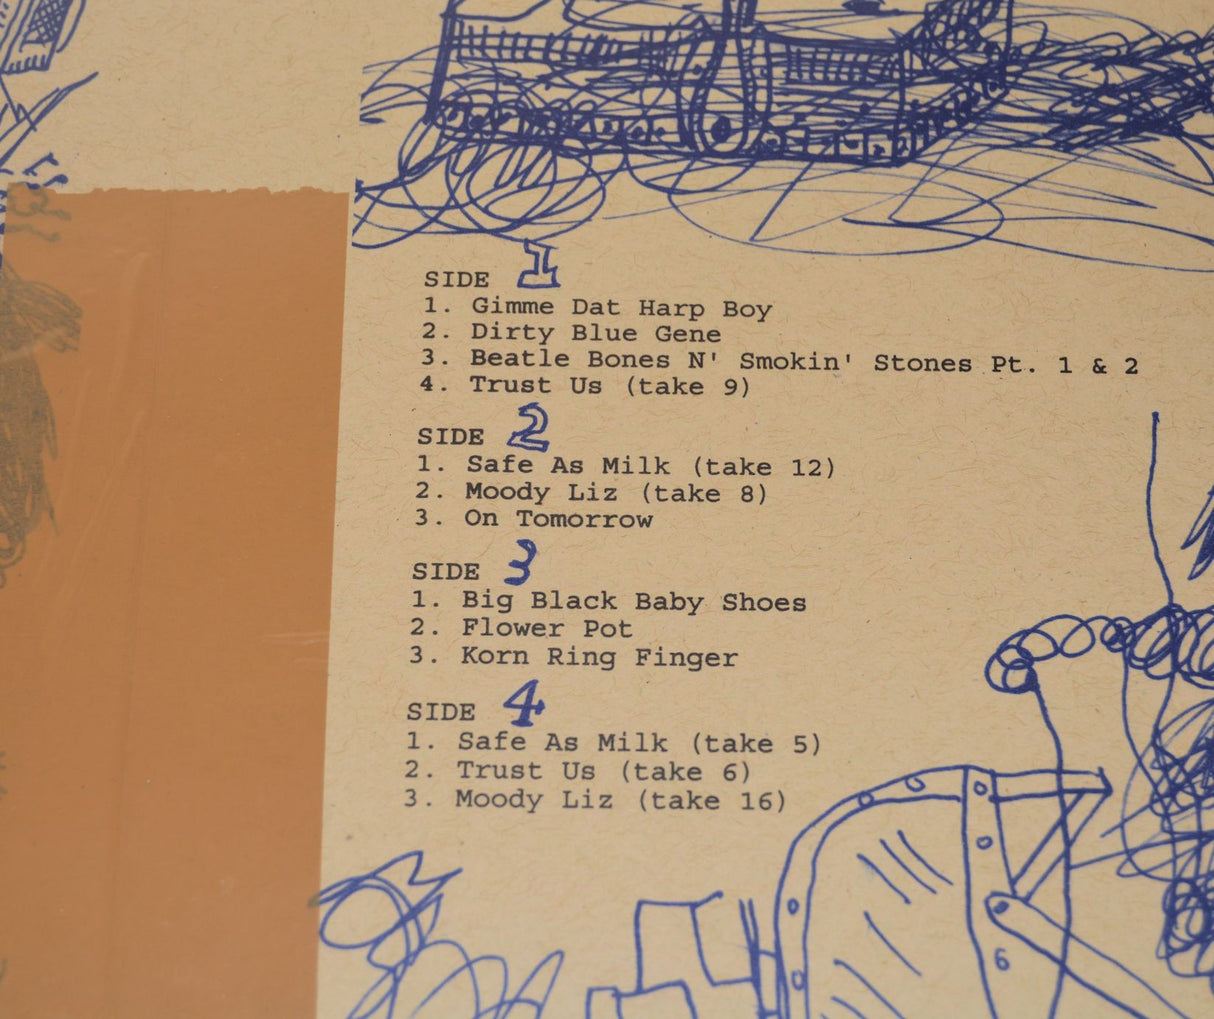 SIDE 1
1. Gimme Dat Harp Boy
2. Dirty Blue Gene
3. Beatle Bones N' Smokin' Stones Pt. 1 & 2
4. Trust Us (take 9)
SIDE 2
1. Safe As Milk (take 12)
2. Moody Liz (take 8)
3. On Tomorrow
SIDE 3
1. Big Black Baby Shoes
2. Flower Pot
3. Korn Ring Finger
SIDE 4
1. Safe As Milk (take 5)
2. Trust Us (take 6)
3. Moody Liz (take 16)
6